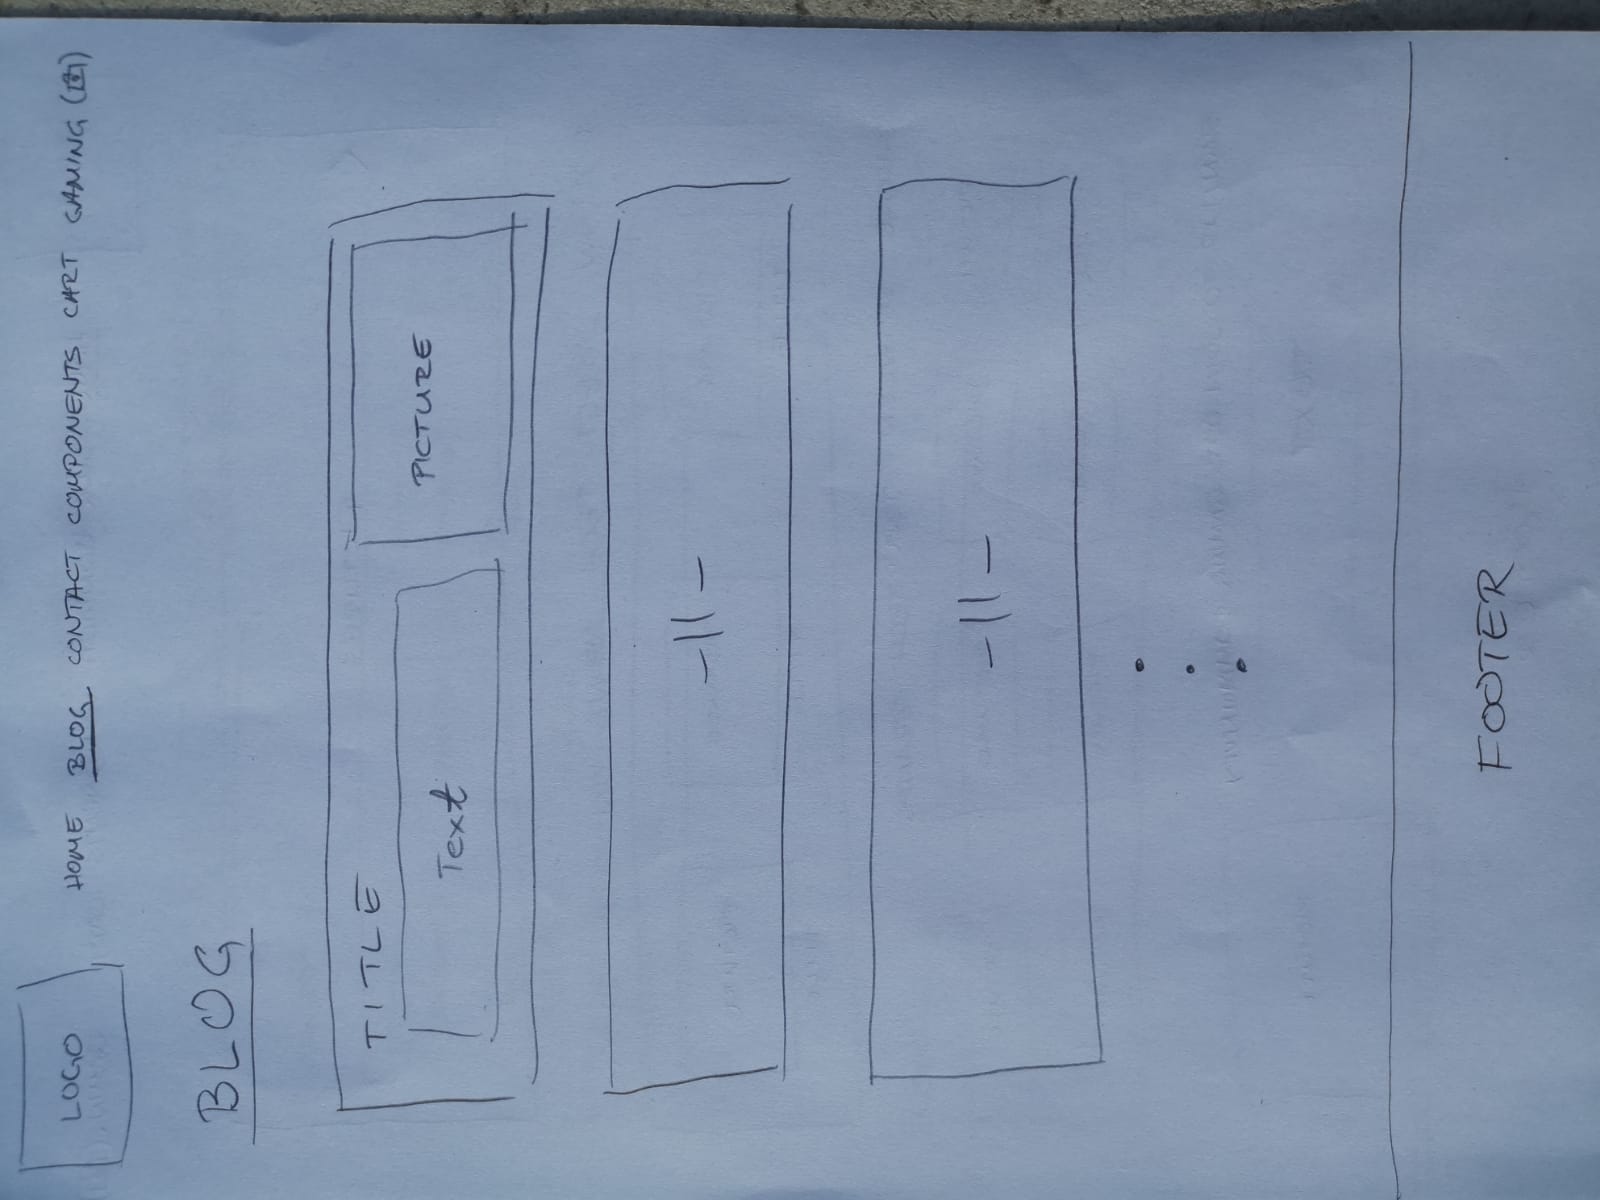 LOGO
HOME BLOG CONTACT COMPONENTS CART GAMING
BLOG
TITLE
Text
PICTURE
-||-
-||-
FOOTER